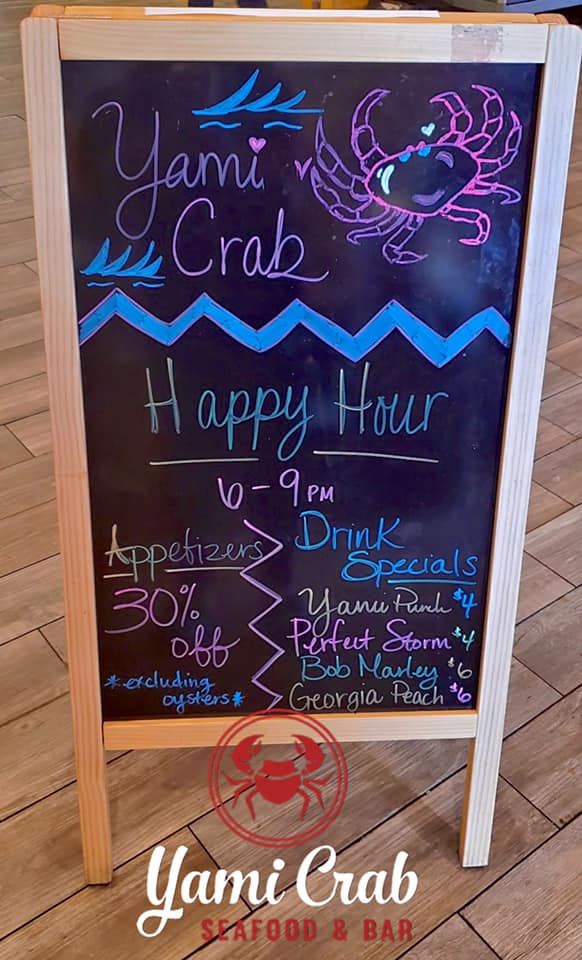 Yami
Crab
Happy Hour
6-9 PM
Appetizers
30%
off
*excluding
oysters*
Drink
Specials
Yami Punch $4
Perfect Storm $4
Bob Marley $6
Georgia Peach $6
Yami Crab
SEAFOOD & BAR